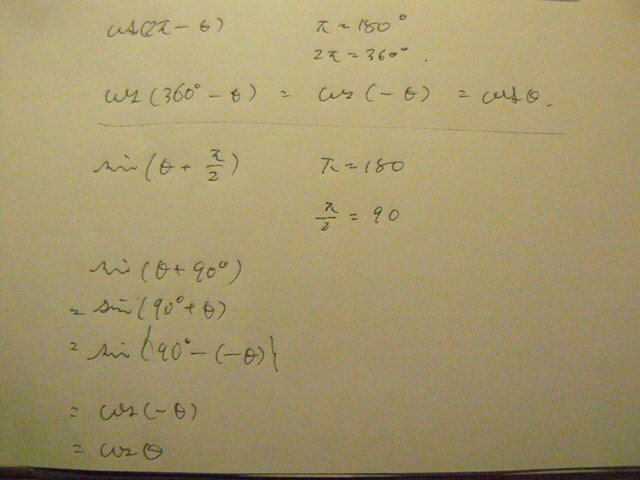 cos(2π - θ) π = 180°
2π = 360°.
cos(360° - θ) = cos(-θ) = cosθ.
sin(θ + π/2) π = 180
π/2 = 90
sin(θ + 90°)
= sin(90° + θ)
= sin{90° - (-θ)}
= cos(-θ)
= cosθ